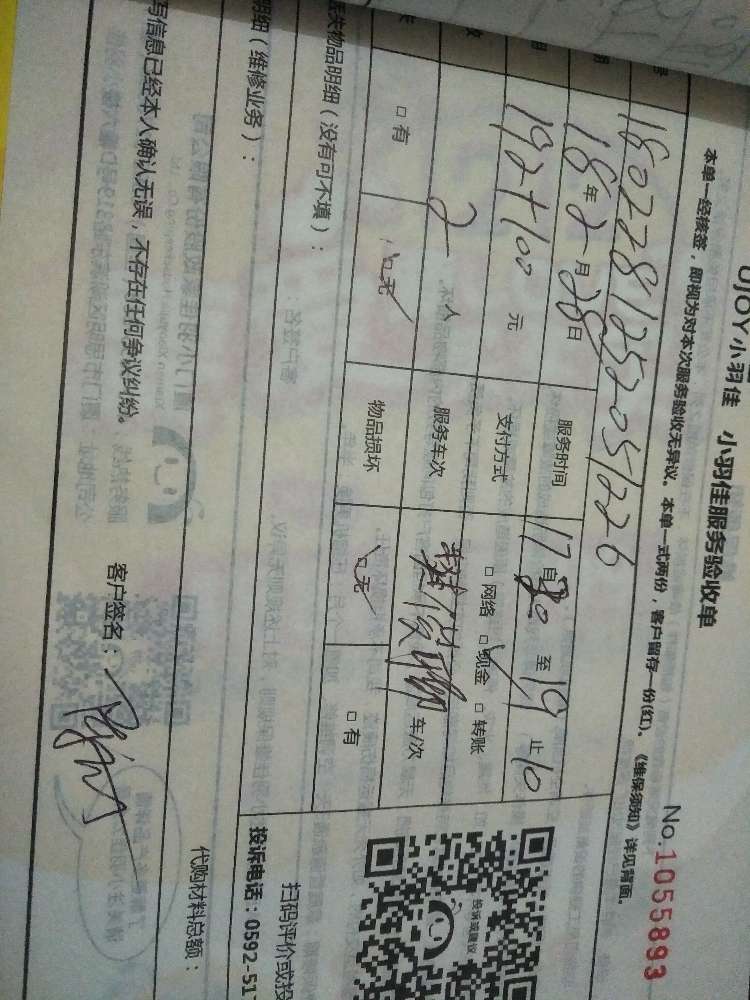 UJOY小羽佳 小羽佳服务验收单
No.1055893
本单一经核签，即视为对本次服务验收无异议。本单一式两份，客户留存一份(红)。《维保须知》详见背面。
号 1802281252051226
期 18年2月28日 服务时间 17自30至19止10
192+100元 支付方式 □网络 □现金 □转账
2人 服务车次 车/次
□有 □无 物品损坏 □无 □有
丢失物品明细（没有可不填）：
扫码评价或投
投诉或建议
明细（维修业务）：
投诉电话：0592-517
代购材料总额：
写信息已经本人确认无误，不存在任何争议纠纷。 客户签名：